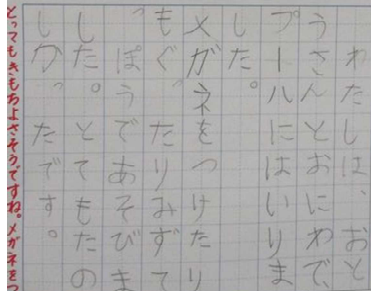 わたしは、おと
うさんとおにわで、
プールにはいりま
した。
メガネをつけたり
もぐったりみずて
っぽうであそびま
した。とてもたの
しかったです。
とってもきもちよさそうですね。メガネをつ